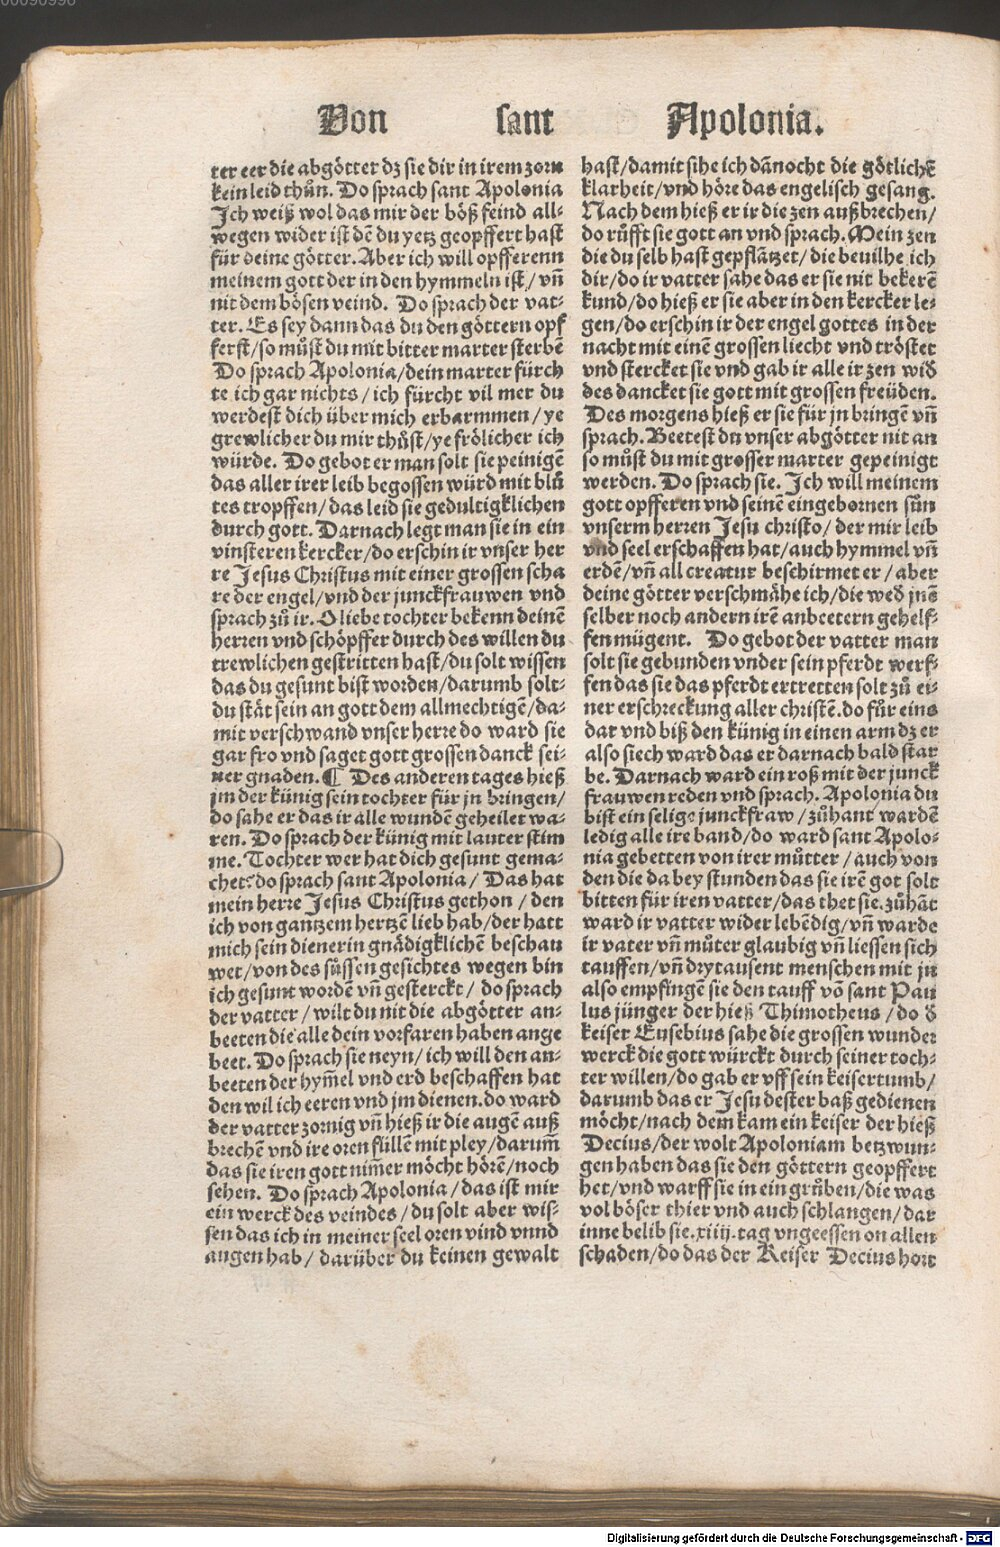 00090996
Von sant Apolonia.
ter eer die abgötter dz sie dir in irem zorn
kein leid thůn. Do sprach sant Apolonia
Ich weiß wol das mir der böß feind all⸗
wegen wider ist dẽ du yetz geopffert hast
für deine götter. Aber ich will opfferenn
meinem gott der in den hymmeln ist/vñ
nit dem bösen veind. Do sprach der vat⸗
ter. Es sey dann das du den göttern opf
ferst/so můst du mit bitter marter sterbẽ
Do sprach Apolonia/dein marter fürch
te ich gar nichts/ich fürcht vil mer du
werdest dich über mich erbarmmen/ye
grewlicher du mir thůst/ye frölicher ich
würde. Do gebot er man solt sie peinigẽ
das aller irer leib begossen würd mit blů
tes tropffen/das leid sie gedultigklichen
durch gott. Darnach legt man sie in ein
vinsteren kercker/do erschin ir vnser her
re Jesus Christus mit einer grossen scha
re der engel/vnd der junckfrauwen vnd
sprach zů ir. O liebe tochter bekenn deinẽ
herren vnd schöpffer durch des willen du
trewlichen gestritten hast/du solt wissen
das du gesunt bist worden/darumb solt⸗
du stät sein an gott dem allmechtigẽ/da⸗
mit verschwand vnser herre do ward sie
gar fro vnd saget gott grossen danck sei⸗
ner gnaden. ¶ Des anderen tages hieß
jm der künig sein tochter für jn bringen/
do sahe er das ir alle wunden geheilet wa⸗
ren. Do sprach der künig mit lauter stim
me. Tochter wer hat dich gesunt gema⸗
chet? do sprach sant Apolonia/Das hat
mein herre Jesus Christus gethon/den
ich von gantzem hertzẽ lieb hab/der hatt
mich sein dienerin gnädigklichẽ beschau
wet/von des süssen gesichtes wegen bin
ich gesunt wordẽ vñ gesterckt/do sprach
der vatter/wilt du nit die abgötter an⸗
beeten die alle dein vorfaren haben ange
beet. Do sprach sie neyn/ich will den an⸗
beeten der hym̃el vnd erd beschaffen hat
den wil ich eeren vnd jm dienen. do ward
der vatter zornig vñ hieß ir die augẽ auß
brechẽ vnd ire oren füllẽ mit pley/darum̃
das sie iren gott nim̃er möcht hörẽ/noch
sehen. Do sprach Apolonia/das ist mir
ein werck des veindes/du solt aber wis⸗
sen das ich in meiner seel oren vind vnnd
augen hab/darüber du keinen gewalt
hast/damit sihe ich dãnocht die götlichẽ
klarheit/vnd höre das engelisch gesang.
Nach dem hieß er ir die zen außbrechen/
do růfft sie gott an vnd sprach. Mein zen
die du selb hast gepflãtzet/die beuilhe ich
dir/do ir vatter sahe das er sie nit bekerẽ
kund/do hieß er sie aber in den kercker le⸗
gen/do erschin ir der engel gottes in der
nacht mit einẽ grossen liecht vnd tröstet
vnd stercket sie vnd gab ir alle ir zen wid̃
des dancket sie gott mit grossen freüden.
Des morgens hieß er sie für jn bringẽ vñ
sprach. Beetest du vnser abgötter nit an
so můst du mit grosser marter gepeinigt
werden. Do sprach sie. Ich will meinem
gott opfferen vnd seinẽ eingebornen sůn
vnserm herren Jesu christo/der mir leib
vnd seel erschaffen hat/auch hymmel vñ
erdẽ/vñ all creatur beschirmet er/aber
deine götter verschmähe ich/die wed̃ jnẽ
selber noch andern irẽ anbeetern gehelf⸗
fen mügent. Do gebot der vatter man
solt sie gebunden vnder sein pferdt werf⸗
fen das sie das pferdt ertretten solt zů ei⸗
ner erschreckung aller christẽ. do fůr eins
dar vnd biß den künig in einen arm dz er
also siech ward das er darnach bald star
be. Darnach ward ein roß mit der junck
frauwen reden vnd sprach. Apolonia du
bist ein selige junckfraw/zůhant wardẽ
ledig alle ire band/do ward sant Apolo⸗
nia gebetten von irer můtter/auch von
den die da bey stunden das sie irẽ got solt
bitten für iren vatter/das thet sie. zůhãt
ward ir vatter wider lebẽdig/vñ warde
ir vater vñ můter glaubig vñ liessen sich
tauffen/vñ drytausent menschen mit jn
also empfingẽ sie den tauff võ sant Pau
lus jünger der hieß Thimotheus/do d̃
keiser Eusebius sahe die grossen wunder
werck die gott würckt durch seiner toch⸗
ter willen/do gab er vff sein keisertumb/
darumb das er Jesu dester baß gedienen
möcht/nach dem kam ein keiser der hieß
Decius/der wolt Apoloniam betzwun⸗
gen haben das sie den göttern geopffert
het/vnd warff sie in ein grůben/die was
vol böser thier vnd auch schlangen/dar
inne belib sie .xiiij. tag vngeessen on allen
schaden/do das der Keiser Decius hort
Digitalisierung gefördert durch die Deutsche Forschungsgemeinschaft - DFG